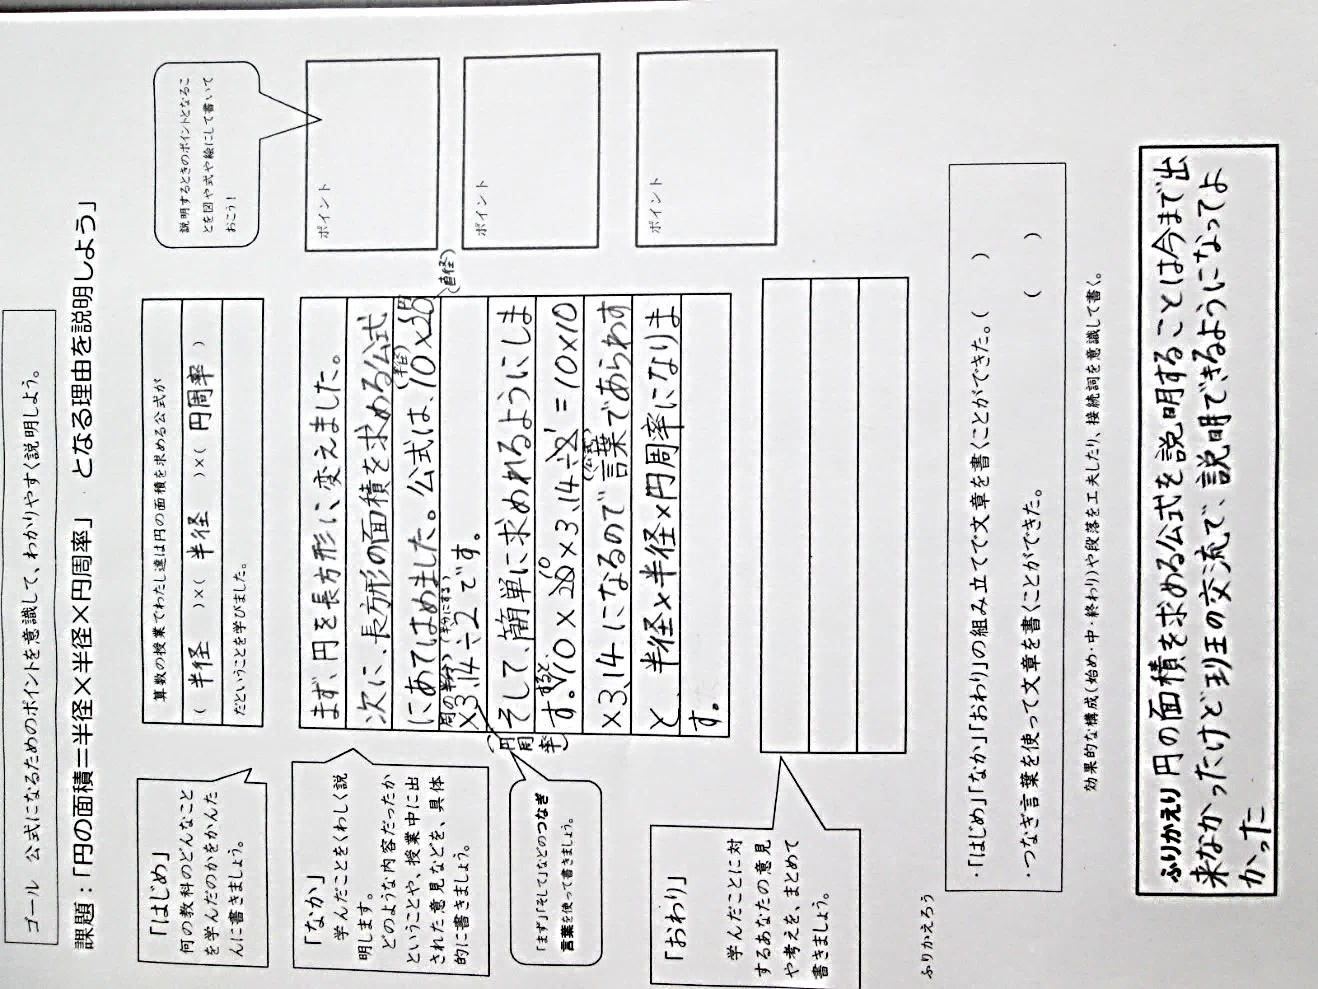 ゴール　公式になるためのポイントを意識して、わかりやすく説明しよう。
課題：「円の面積＝半径×半径×円周率」　となる理由を説明しよう」
「はじめ」
何の教科のどんなこと
を学んだのかをかんた
んに書きましょう。
算数の授業でわたし達は円の面積を求める公式が
（半径　）×（半径　）×（円周率）
だということを学びました。
説明するときのポイントとなるこ
とを図や式や絵にして書いて
おこう！
「なか」
学んだことをくわしく説
明します。
どのような内容だったか
ということや、授業中に出
された意見などを、具体
的に書きましょう。
「まず」「そして」などのつなぎ
言葉を使って書きましょう。
まず、円を長方形に変えました。
次に、長方形の面積を求める公式
(半径)
(直径)
にあてはめました。公式は、10×20
(半分にする)
×3.14÷2です。
(円周率)
そして、簡単に求めれるようにしま
すると、
10
す。10×20×3.14÷2＝10×10
(公式)
×3.14になるので言葉であらわす
と、半径×半径×円周率になりま
す。
ポイント
ポイント
ポイント
「おわり」
学んだことに対
するあなたの意見
や考えを、まとめて
書きましょう。
ふりかえろう
・「はじめ」「なか」「おわり」の組み立てで文章を書くことができた。（　　）
・つなぎ言葉を使って文章を書くことができた。　（　　）
効果的な構成（始め・中・終わり）や段落を工夫したり、接続詞を意識して書く。
ふりかえり 円の面積を求める公式を説明することは今まで出
来なかったけど班の交流で、説明できるようになってよ
かった